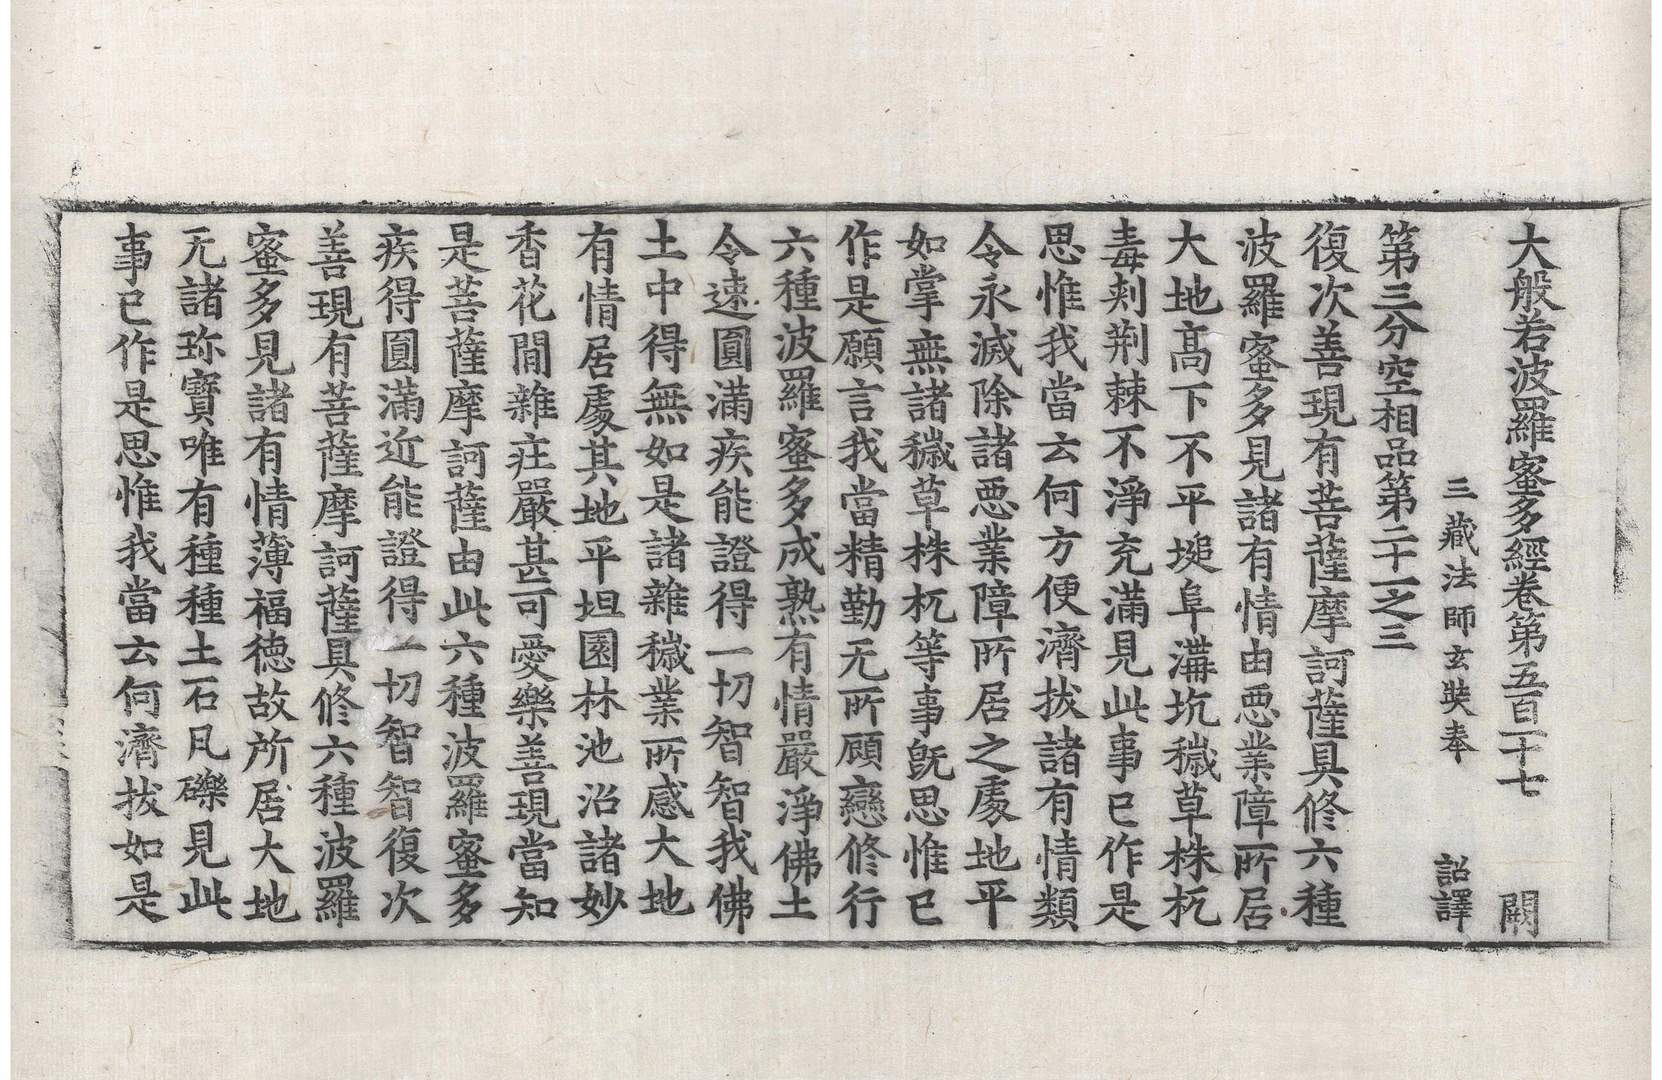 大般若波羅蜜多經卷第五百一十七 闕
三藏法師玄奘奉 詔譯
第三分空相品第二十一之三
復次善現有菩薩摩訶薩具修六種
波羅蜜多見諸有情由惡業障所居
大地高下不平塠阜溝坑穢草株杌
毒刺荊棘不淨充滿見此事已作是
思惟我當云何方便濟拔諸有情類
令永滅除諸惡業障所居之處地平
如掌無諸穢草株杌等事旣思惟已
作是願言我當精勤无所顧戀修行
六種波羅蜜多成熟有情嚴淨佛土
令速圓滿疾能證得一切智智我佛
土中得無如是諸雜穢業所感大地
有情居處其地平坦園林池沼諸妙
香花間雜莊嚴甚可愛樂善現當知
是菩薩摩訶薩由此六種波羅蜜多
疾得圓滿近能證得一切智智復次
善現有菩薩摩訶薩具修六種波羅
蜜多見諸有情薄福德故所居大地
无諸珎寶唯有種種土石凡礫見此
事已作是思惟我當云何濟拔如是